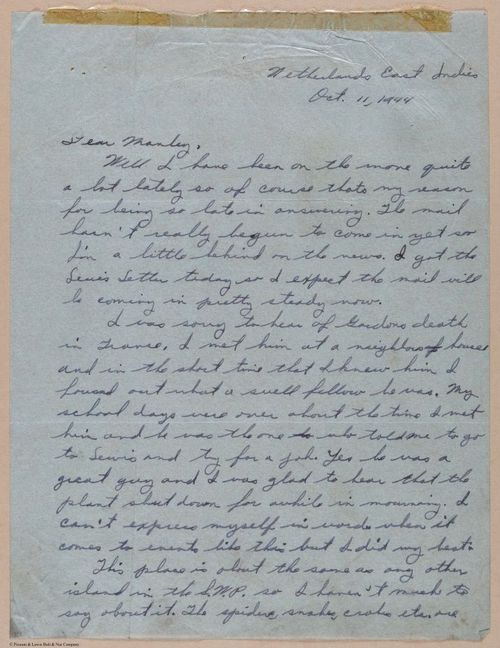 Netherlands East Indies
Oct. 11, 1944
Dear Manley,
Well I have been on the move quite
a lot lately so of course thats my reason
for being so late in answering. The mail
hasn't really begun to come in yet so
I'm a little behind on the news. I got the
Lewis Letter today so I expect the mail will
be coming in pretty steady now.
I was sorry to hear of Gordons death
in France. I met him at a neighbors house
and in the short time that I knew him I
found out what a swell fellow he was. My
school days were over about the time I met
him and he was the one to who told me to go
to Lewis and try for a job. Yes he was a
great guy and I was glad to hear that the
plant shut down for awhile in mourning. I
can't express myself in words when it
comes to events like this but I did my best.
This place is about the same as any other
island in the S.W.P. so I haven't much to
say about it. The spiders, snakes, crabs etc. are
© Pinzani & Lewis Bolt & Nut Company